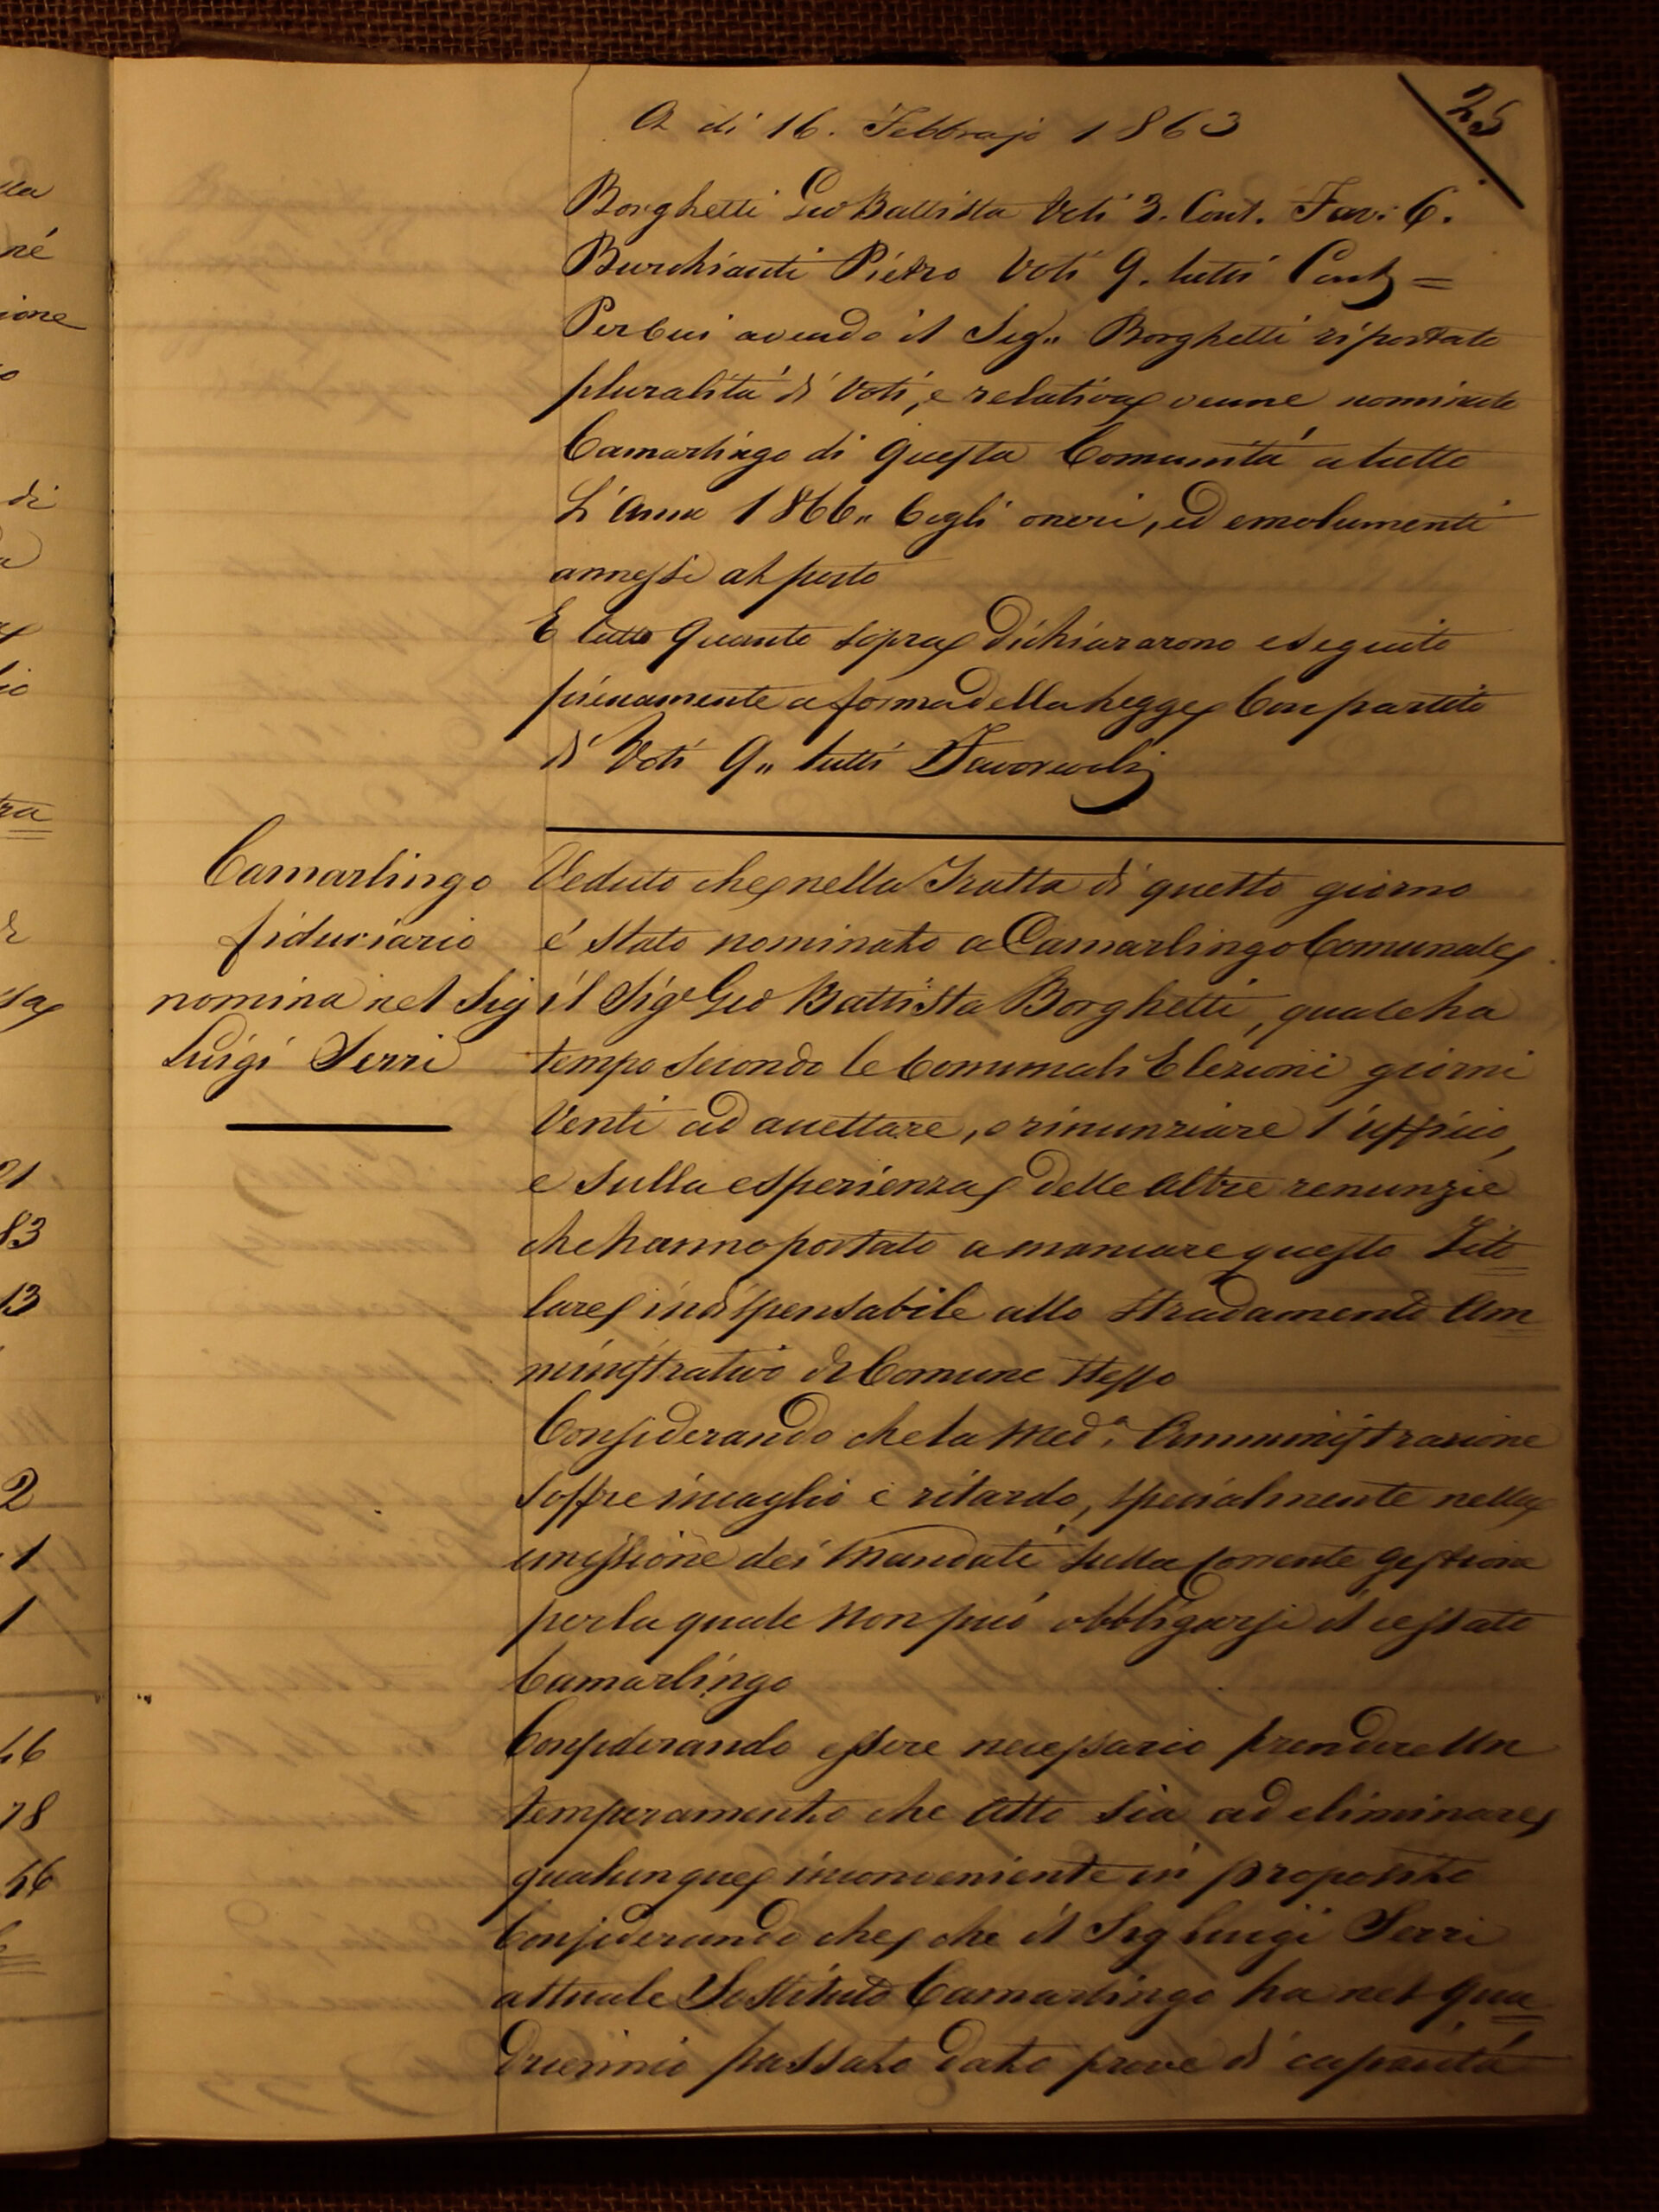 25
A di 16. Febbrajo 1863
Borghetti Gio Battista Voti 3. Cont. Fav: 6.
Burchianti Pietro Voti 9. tutti Cont =
Per Cui avendo il Sig.. Borghetti riportato
pluralità di Voti, e relativa venne nominato
Camarlingo di questa Comunità a tutto
L'anno 1866.. Cogli oneri, ed emolumenti
annessi al posto
E tutto quanto sopra dichiararono eseguito
pienamente a forma della Legge Con partito
di Voti 9.. tutti Favorevoli
Camarlingo
fiduciario
nomina nel Sig
Luigi Serri
Veduto che nella Tratta di questo giorno
é stato nominato a Camarlingo Comunale
il Sig.e Gio Battista Borghetti, quale ha
tempo secondo le Comunali Elezioni giorni
Venti ad accettare, o rinunziare l'ufficio,
e sulla esperienza delle altre renunzie
che hanno portato a mancare questo Tito
lare indispensabile allo stradamento Am
ministrativo di Comune stesso
Considerando che la Med.a Amministrazione
soffre incaglio e ritardo, specialmente nella
emissione dei Mandati sulla Corrente gestione
per la quale non può obbligarsi il cessato
Camarlingo
Considerando essere necessario prendere Un
temperamento che atto sia ad eliminare
qualunque inconveniente in proposito
Considerando che che il Sig Luigi Serri
attuale Sostituto Camarlingo ha nel qua
driennio passato dato prove di capacità
di
né
ione
21
83
13
2
1
1
46
78
46